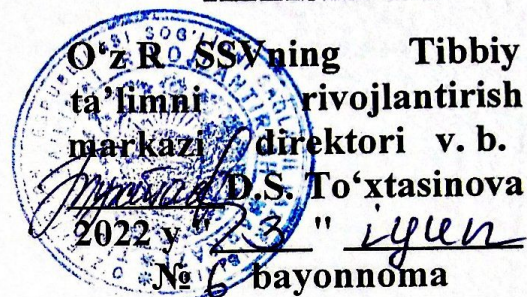 O‘z R SSVning Tibbiy
ta’limni rivojlantirish
markazi direktori v. b.
D.S. To‘xtasinova
2022 y "23" iyun
№ 6 bayonnoma